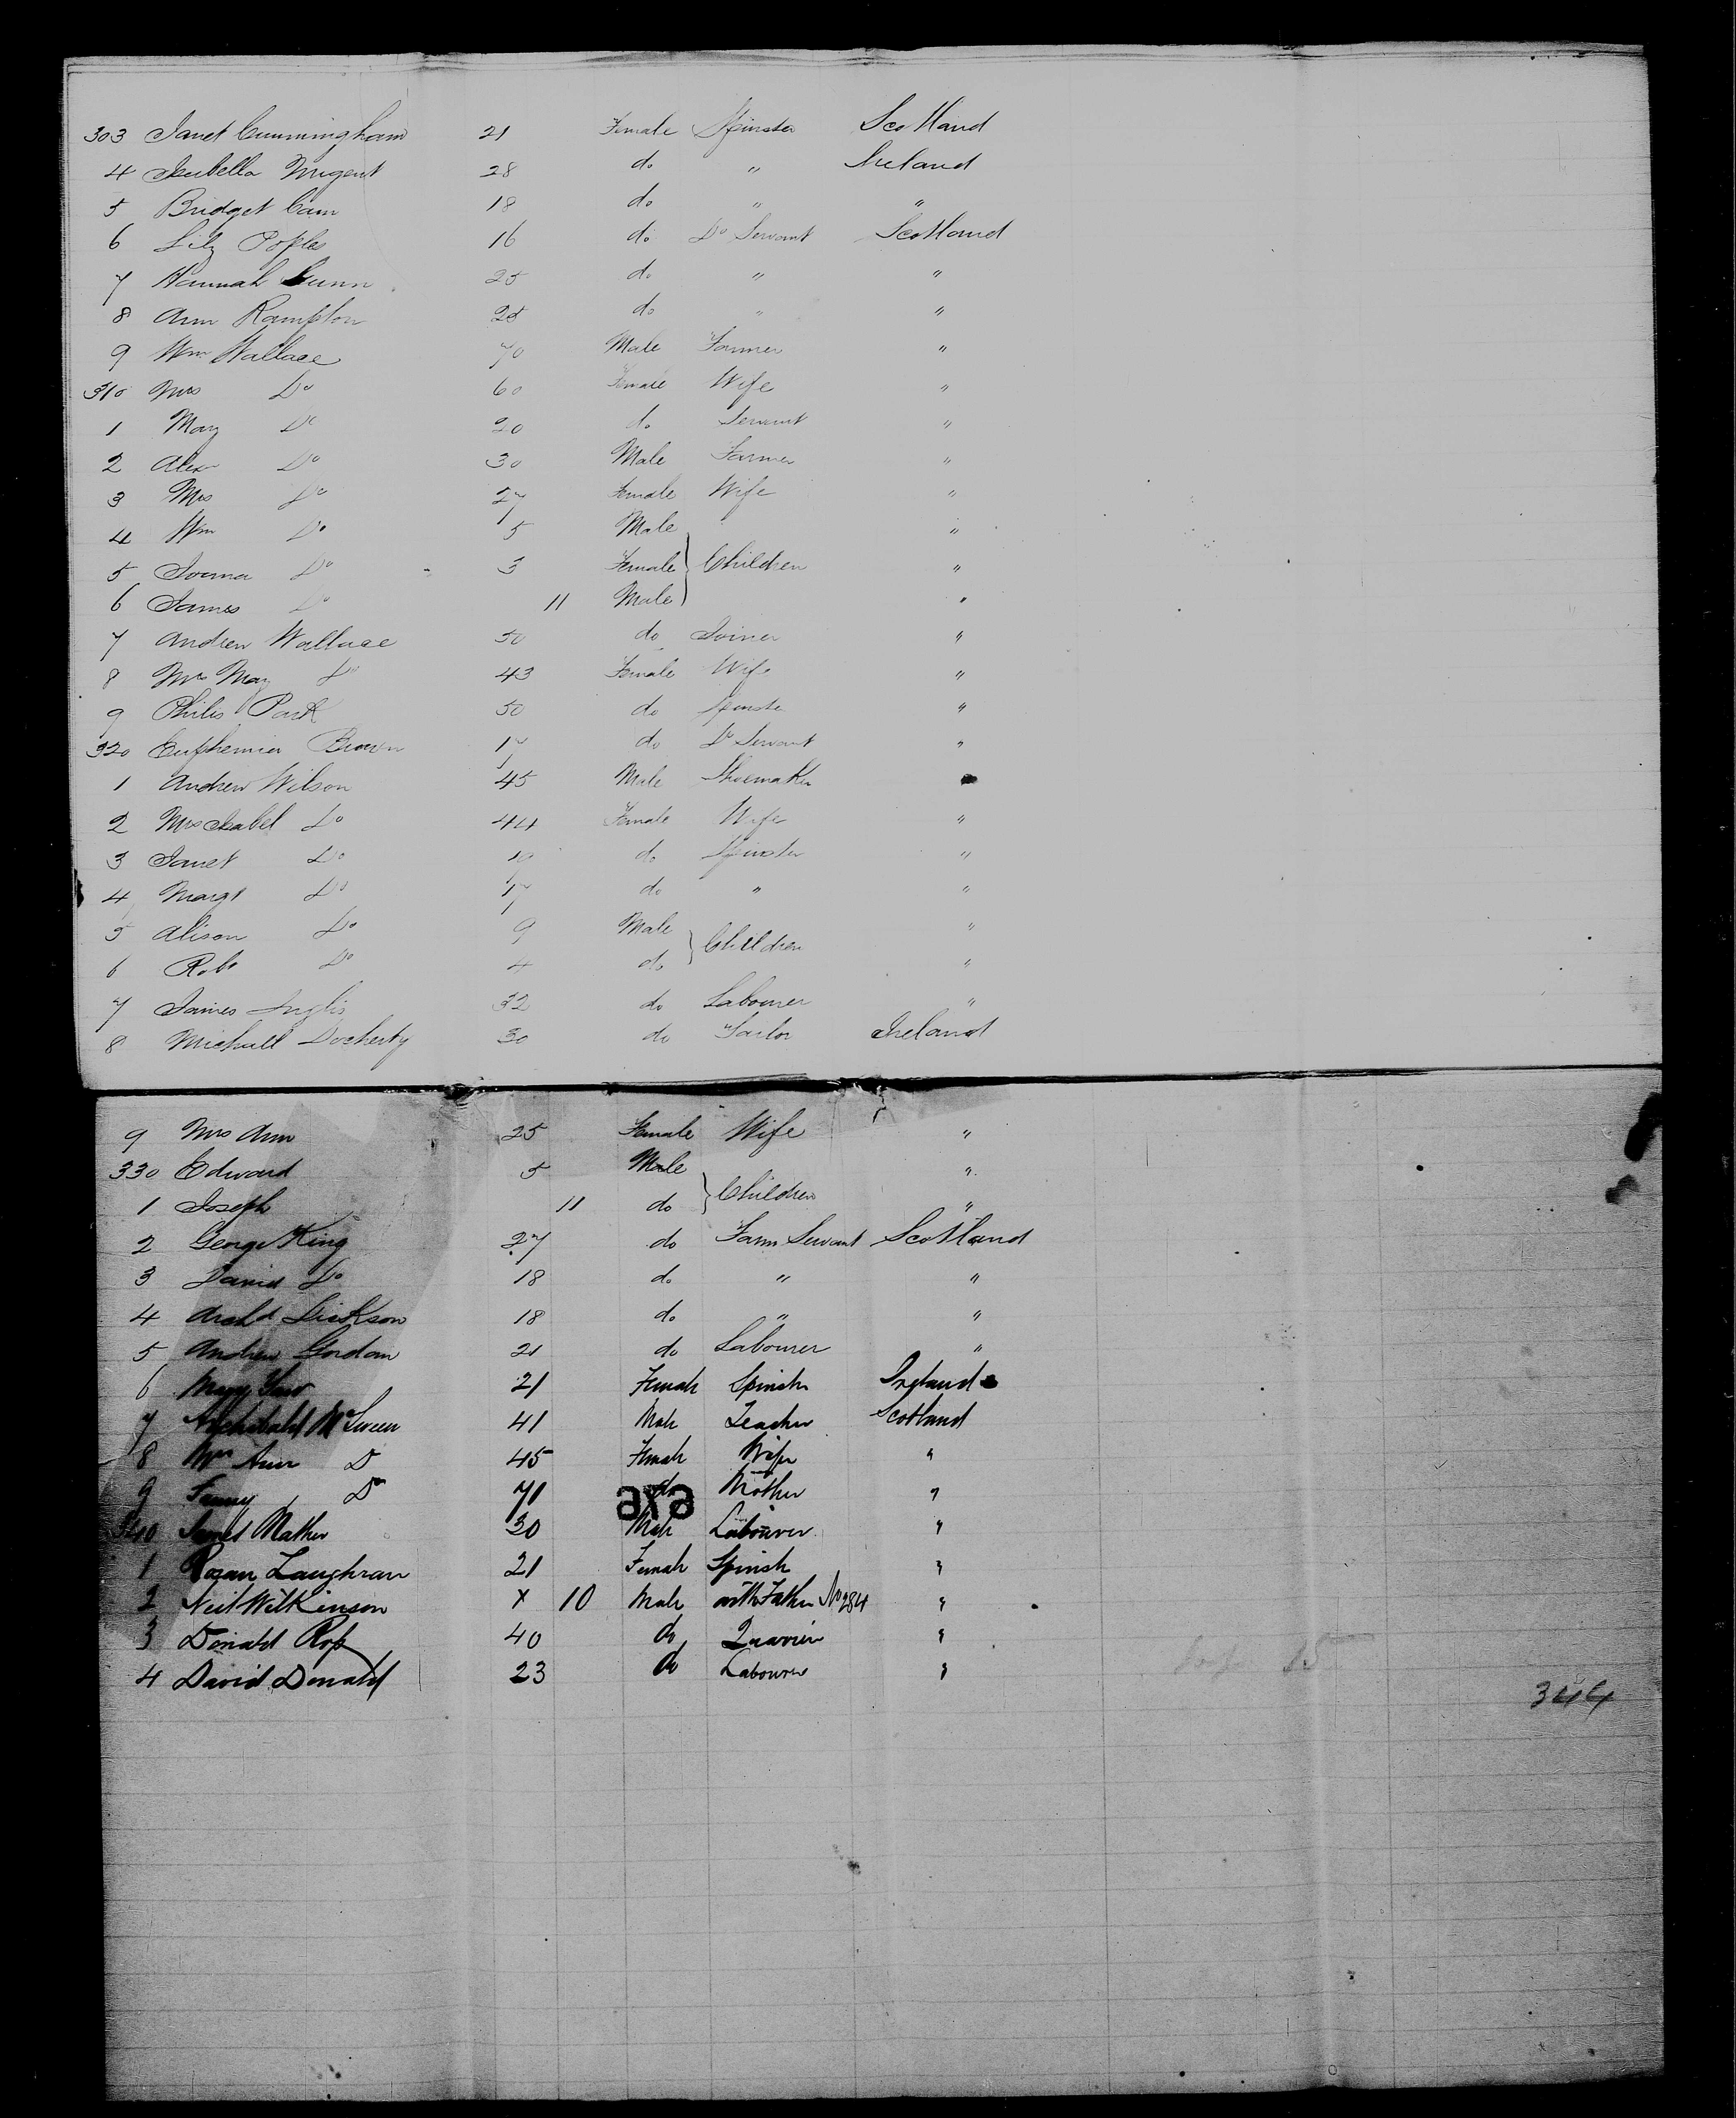 303 Janet Cunningham 21 Female Spinster Scotland
4 Isabella Nugent 28 do " Ireland
5 Bridget Cain 18 do " "
6 Lily Poples 16 do Do Servant Scotland
7 Hannah Gunn 25 do " "
8 Ann Rampton 25 do " "
9 Wm Wallace 70 Male Farmer "
310 Mrs Do 60 Female Wife "
1 May Do 20 do Servant "
2 Alexr Do 30 Male Farmer "
3 Mrs Do 27 Female Wife "
4 Wm Do 5 Male "
5 Do 3 Female Children "
6 James Do 11 Male "
7 Andrew Wallace 50 do Joiner "
8 Mrs May Do 43 Female Wife "
9 Philis Park 50 do Spinster "
320 Euphemier Brown 17 do Do Servant "
1 Andrew Wilson 45 Male Shoemaker
2 Mrs Isabel Do 44 Female Wife "
3 Janet Do 19 do Spinster "
4 Margt Do 17 do " "
5 Alison Do 9 Male Children "
6 Robt Do 4 do "
7 James Inglis 32 do Labourer "
8 Michall Docherty 30 do Tailor Ireland
9 Mrs Ann 25 Female Wife "
330 Edward 5 Male "
1 Joseph 11 do Children "
2 George King 27 do Farm Servant Scotland
3 David Do 18 do " "
4 Archd Dickson 18 do " "
5 Andrew Gordon 21 do Labourer "
6 Mary 21 Female Spinster Ireland
7 Archibald McSween 41 Male Teacher Scotland
8 Mrs Ann Do 45 Female Wife "
9 Do 71 do Mother "
340 Mather 30 Male Labourer "
1 Rozan Laughran 21 Female Spinster "
2 Neil Wilkinson x 10 Male with Father No 284 "
3 Donald Ross 40 do Quarrier "
4 David Donald 23 do Labourer "
344